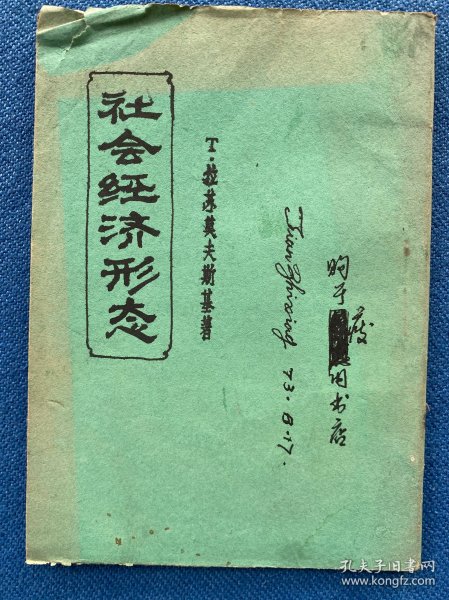 社会经济形态
T·拉苏莫夫斯基著
73.8.17.
购于
旧书店
孔夫子旧书网
www.kongfz.com